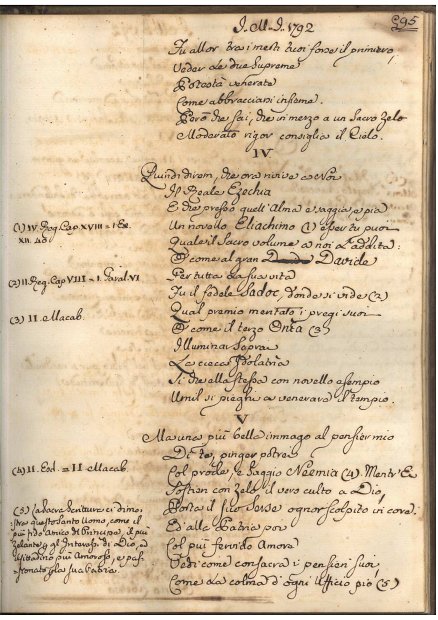 I. M. I. 1792
595
Tu allor tra i mesti tuoi forse il primiero,
Veder le due Supreme
Potestà venerate
Come abbracciarsi insieme.
Però che sai, che in mezzo a un Sacro Zelo
Moderato rigor consiglia il Cielo.
IV
Quindi direm, che ora rivive a Noi
Il Reale Ezechia
E che presso quell'Alma e saggia, e pia
(1) IV Reg. Cap XVIII = I
Un novello Eliachino (1) esser tu puoi
Quale il Sacro volume a noi l'addita:
O come al gran Davide
Per tutta la sua vita
(2) II Reg. Cap VIII = I. Paral. VI
Fu il fedele Sadoc, donde si vide (2)
Qual premio mentalo i pregi suoi
(3) II. Macab.
O come il terzo Onia (3)
Illuminar Sapra
La cieca Idolatria
Si che alla stessa con novello esempio
Umil si pieghi a venerare il tempio.
V
Ma una più bella immago al pensier mio
Di te, pinger potrei
(4) II. Esd. = II Macab
Col prode, e saggio Neemia (4). Mentr'Ei
Sostien con Zelo il vero culto a Dio,
Porta il suo Serse ognor scolpito in core:
(5) La Sacra Scrittura ci dimostra questo Santo Uomo, come il
più fido Amico del Principe, il più
Zelante per gl'Interessi di Dio, il
Cittadino più Amoroso, e
per la sua Patria.
Ed alla Patria poi
Col più fervido Amore
Vedi come consacra i pensieri suoi,
Come la colma d'ogni Ufficio pio (5)